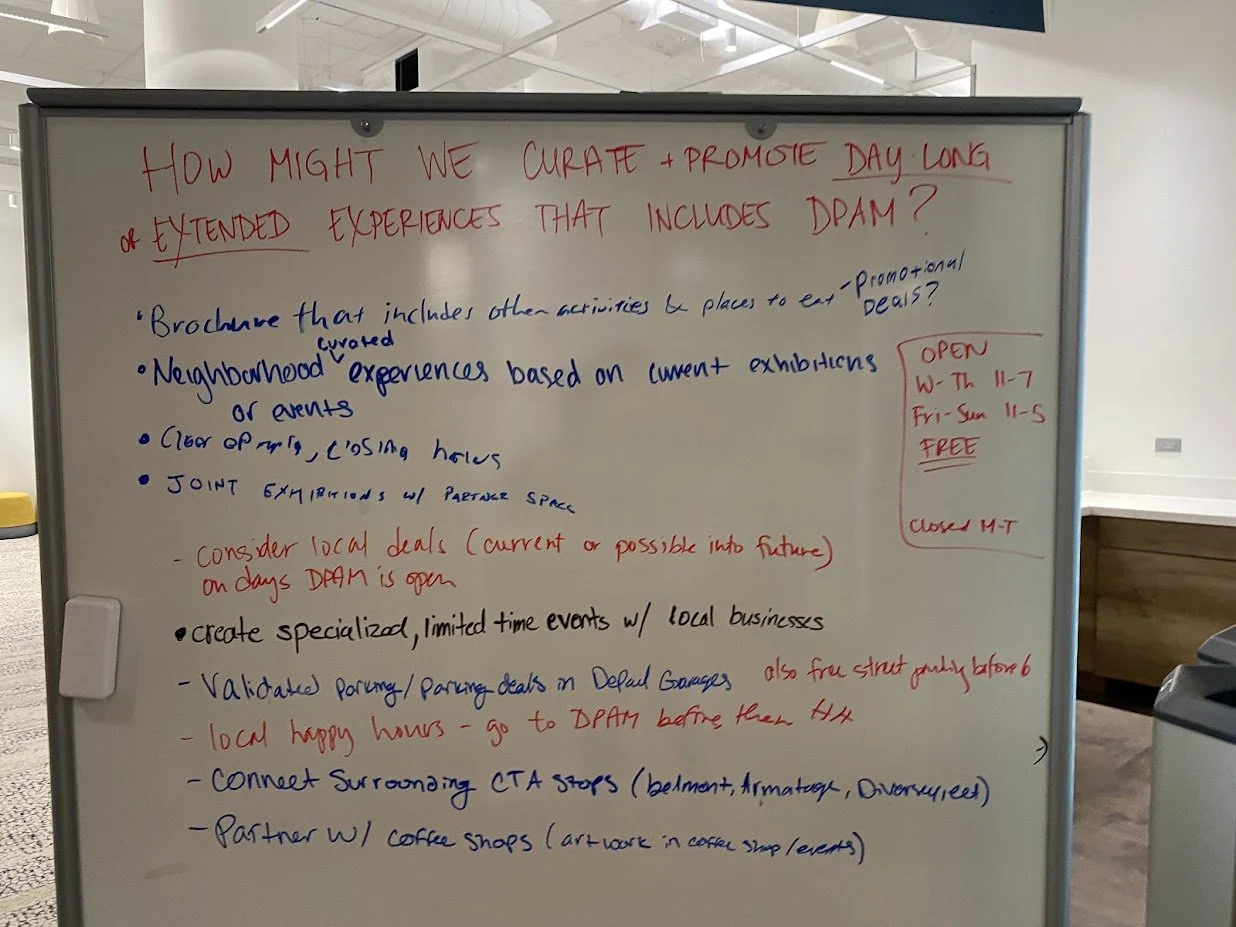 HOW MIGHT WE CURATE + PROMOTE DAY-LONG
or EXTENDED EXPERIENCES THAT INCLUDES DPAM?
• Brochure that includes other activities & places to eat - Promotional
Deals?
curated
• Neighborhood experiences based on current exhibitions
or events
• Clear opening, closing hours
• JOINT EXHIBITIONS W/ PARTNER SPACE
OPEN
W-Th 11-7
Fri-Sun 11-5
FREE
Closed M-T
- consider local deals (current or possible into future)
on days DPAM is open
• create specialized, limited time events w/ local businesses
- Validated parking/parking deals in DePaul Garages also free street parking before 6
- local happy hours - go to DPAM before then HH
- Connect Surrounding CTA stops (belmont, Armatage, Diversey, ect)
- Partner w/ coffee shops (artwork in coffee shop/events)